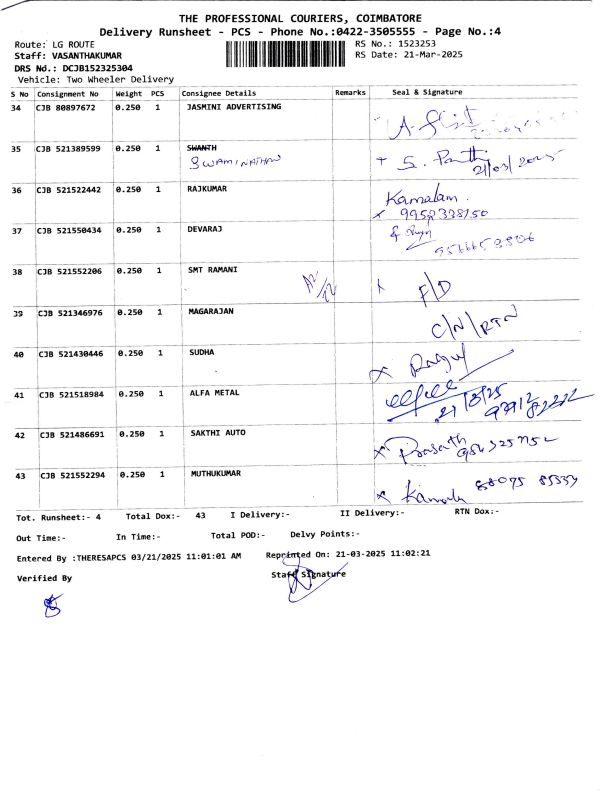 THE PROFESSIONAL COURIERS, COIMBATORE
Delivery Runsheet - PCS - Phone No.:0422-3505555 - Page No.:4
Route: LG ROUTE
RS No.: 1523253
Staff: VASANTHAKUMAR
RS Date: 21-Mar-2025
DRS No.: DCJB152325304
Vehicle: Two Wheeler Delivery
S No Consignment No Weight PCS Consignee Details Remarks Seal & Signature
34 CJB 80897672 0.250 1 JASMINI ADVERTISING
35 CJB 521389599 0.250 1 SWANTH
SWAMINATHAN
21/03/2025
36 CJB 521522442 0.250 1 RAJKUMAR Kamalam
37 CJB 521550434 0.250 1 DEVARAJ
38 CJB 521552206 0.250 1 SMT RAMANI F/D
39 CJB 521346976 0.250 1 MAGARAJAN C/N/RTN
40 CJB 521430446 0.250 1 SUDHA
41 CJB 521518984 0.250 1 ALFA METAL 21/3/25
42 CJB 521486691 0.250 1 SAKTHI AUTO Prasath
43 CJB 521552294 0.250 1 MUTHUKUMAR
Tot. Runsheet:- 4 Total Dox:- 43 I Delivery:- II Delivery:- RTN Dox:-
Out Time:- In Time:- Total POD:- Delvy Points:-
Entered By :THERESAPCS 03/21/2025 11:01:01 AM Reprinted On: 21-03-2025 11:02:21
Verified By Staff Signature